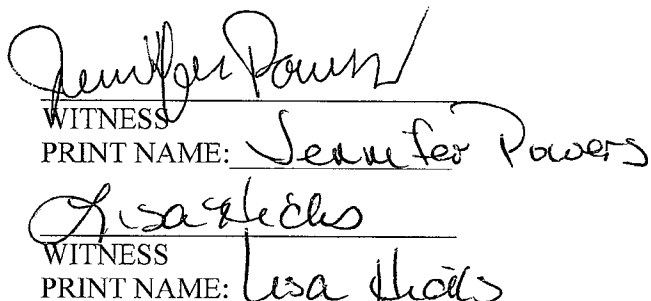 Jennifer Powers
WITNESS
PRINT NAME: Jennifer Powers
Lisa Hicks
WITNESS
PRINT NAME: Lisa Hicks